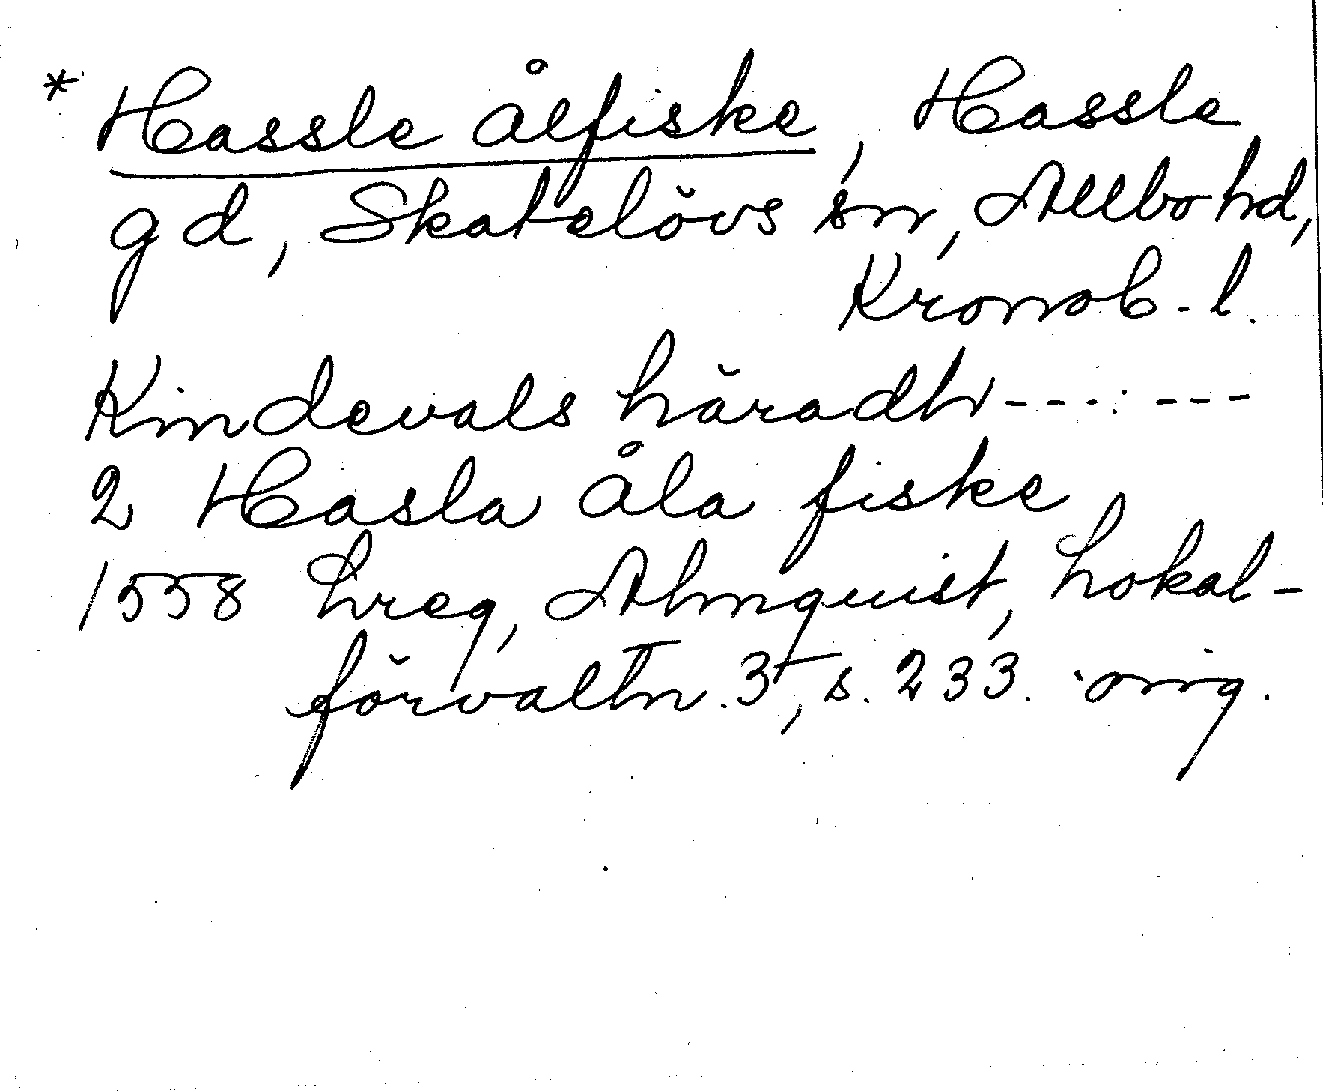 * Hassle ålfiske, Hassle
gd, Skatelövs sn, Allbo hd,
Kronob. l.
Kindevals häradh - - - . - - -
2 Hasla åla fiske
1558 Lreg, Almquist, Lokal-
förvaltn. 3, s. 233. orig.